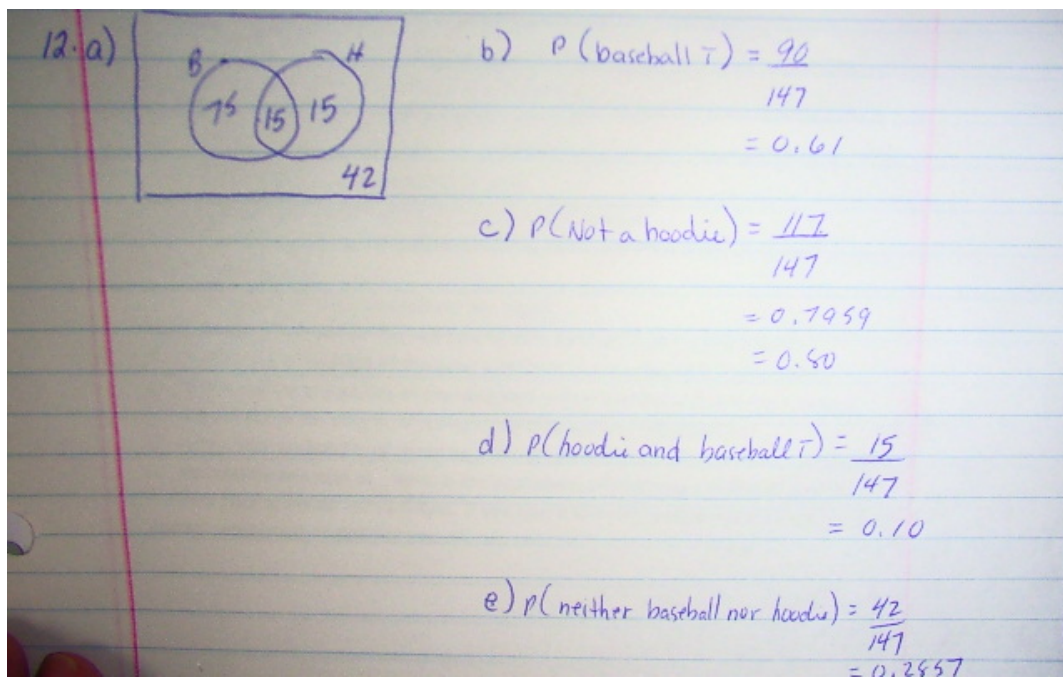 12. a)
B H
75 15 15
42
b) P (baseball T) = 90
147
= 0.61
c) P(Not a hoodie) = 117
147
= 0.7959
= 0.80
d) P(hoodie and baseball T) = 15
147
= 0.10
e) P(neither baseball nor hoodie) = 42
147
= 0.2857